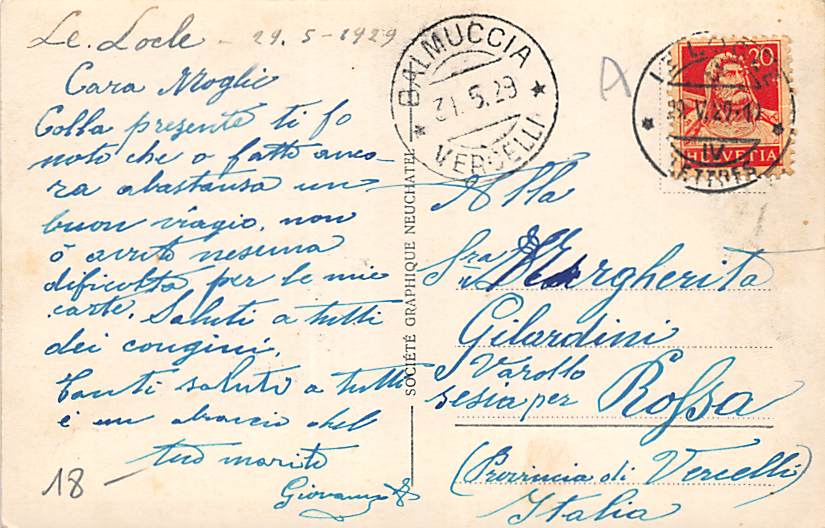 Le. Locle - 29. 5 - 1929
Cara Moglie
Colla presente ti fo
noto che o fatto anco-
ra abastansa un
buon viagio, non
ò avuto nesuna
dificoltà per le mie
carte. Saluti a tutti
dei congini.
Tanti saluti a tutti
é un abracio del
tuo marito
Giovanni
18-
SOCIÉTÉ GRAPHIQUE NEUCHATEL
BALMUCCIA
31.5.29
VERCELLI
A
LE LOCLE
29.V.29-17
IV
LETTRES
20
HELVETIA
Alla
Sra Margherita
Gilardini
Varollo
sesia per Rossa
(Provincia di Vercelli)
Italia